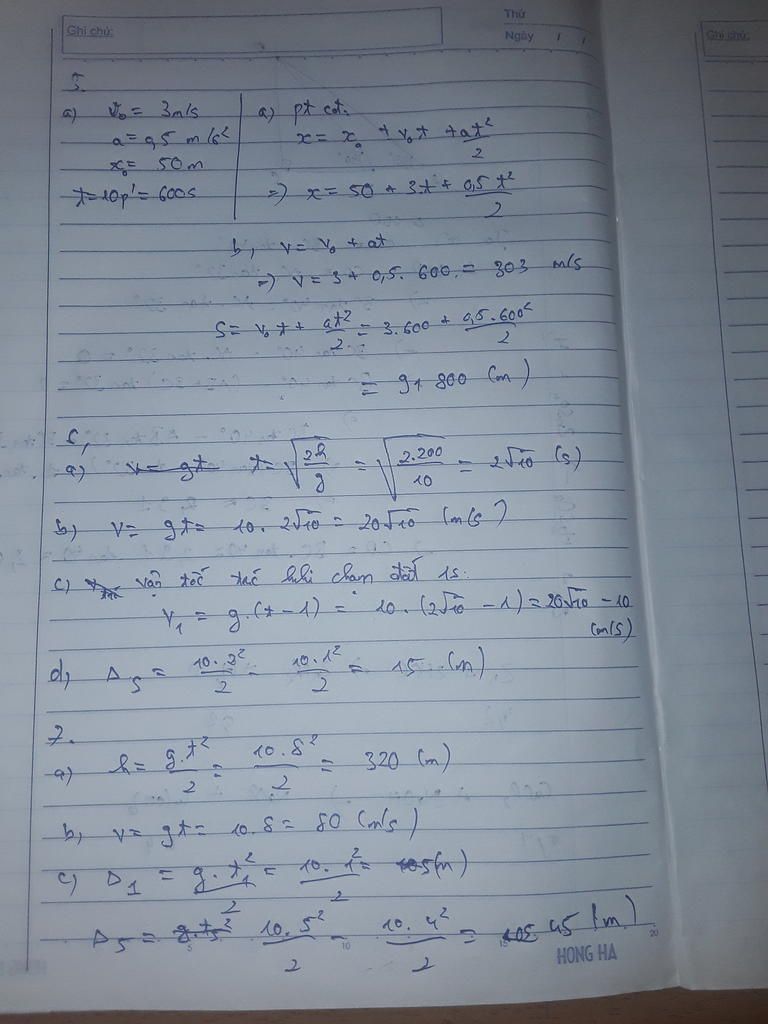 Ghi chú:
Thứ
Ngày / /
Ghi chú:
5.
a) v₀ = 3m/s
a = 0,5 m/s²
x₀ = 50m
t = 10p' = 600s
a) pt cđ:
x = x₀ + v₀t + at²/2
=> x = 50 + 3t + 0,5t²/2
b, v = v₀ + at
=> v = 3 + 0,5. 600 = 303 m/s
S = v₀t + at²/2 = 3.600 + 0,5.600²/2
= 91 800 (m)
6,
a) v = gt t = √(2h/g) = √(2.200/10) = 2√10 (s)
b) v = gt = 10. 2√10 = 20√10 (m/s)
c) vận tốc trc khi chạm đất 1s:
v₁ = g.(t - 1) = 10.(2√10 - 1) = 20√10 - 10
(m/s)
d, Δs = 10.2²/2 - 10.1²/2 = 15 (m)
7.
a) h = g.t²/2 = 10.8²/2 = 320 (m)
b, v = gt = 10.8 = 80 (m/s)
c) Δ₁ = g.t₁²/2 = 10.1²/2 = 5(m)
Δ₅ = 10.5²/2 - 10.4²/2 = 45 (m)
5 10 15 20
HONG HA